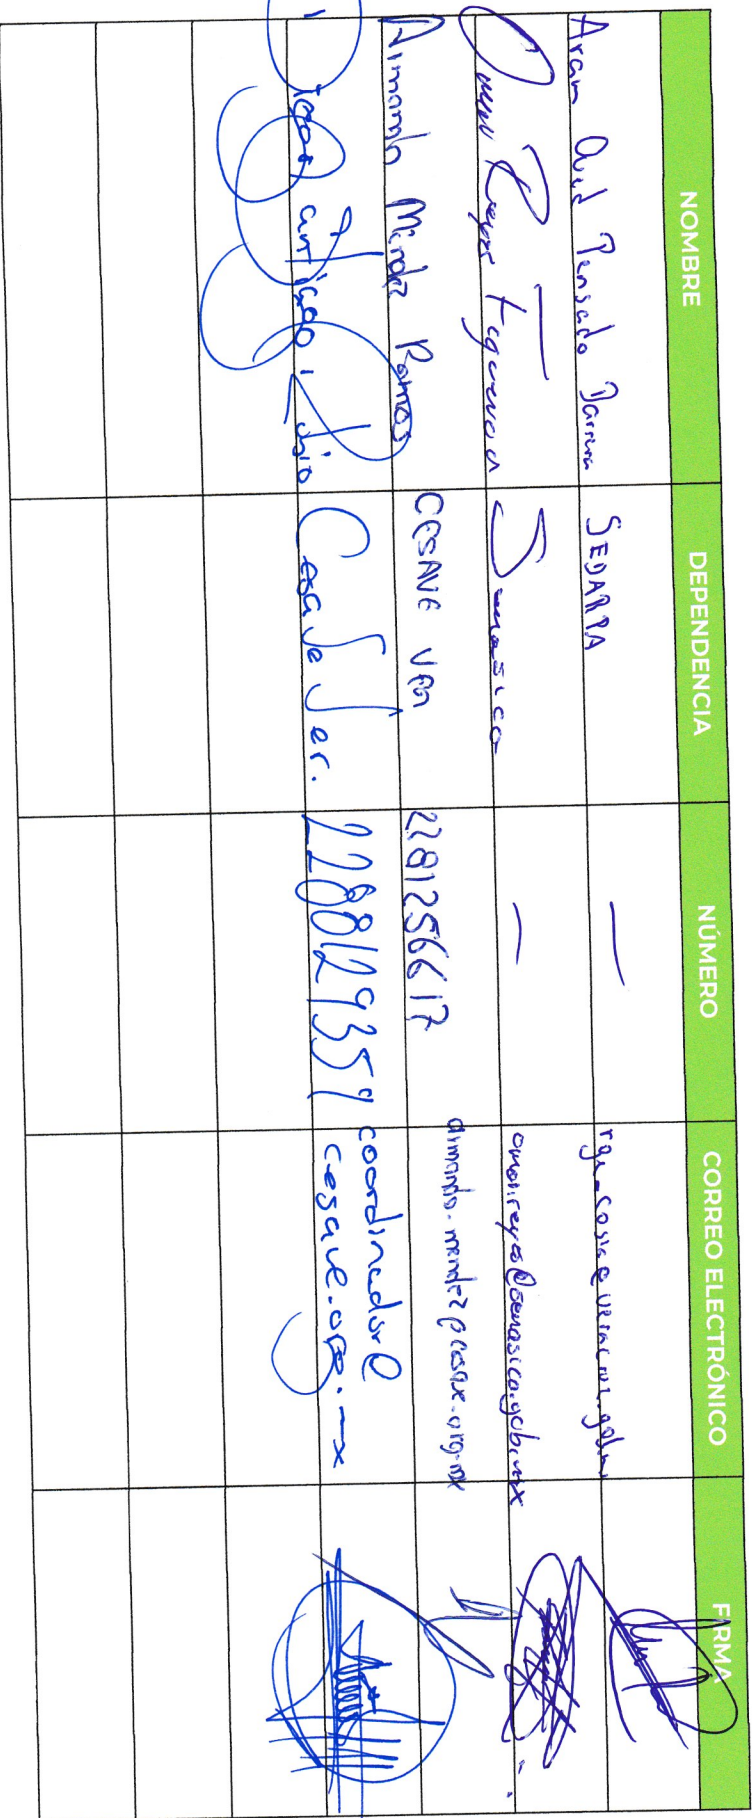 NOMBRE DEPENDENCIA NÚMERO CORREO ELECTRÓNICO FIRMA
Aram Pensado SEDARPA —
Omar Reyes Figueroa Senasica — omar.reyes@senasica.gob.mx
Armando Méndez Ramos CESAVE VER 2281256617 armando.mendez@cesave.org.mx
Cesave Ver. 2288129359 coordinador@
cesave.org.mx